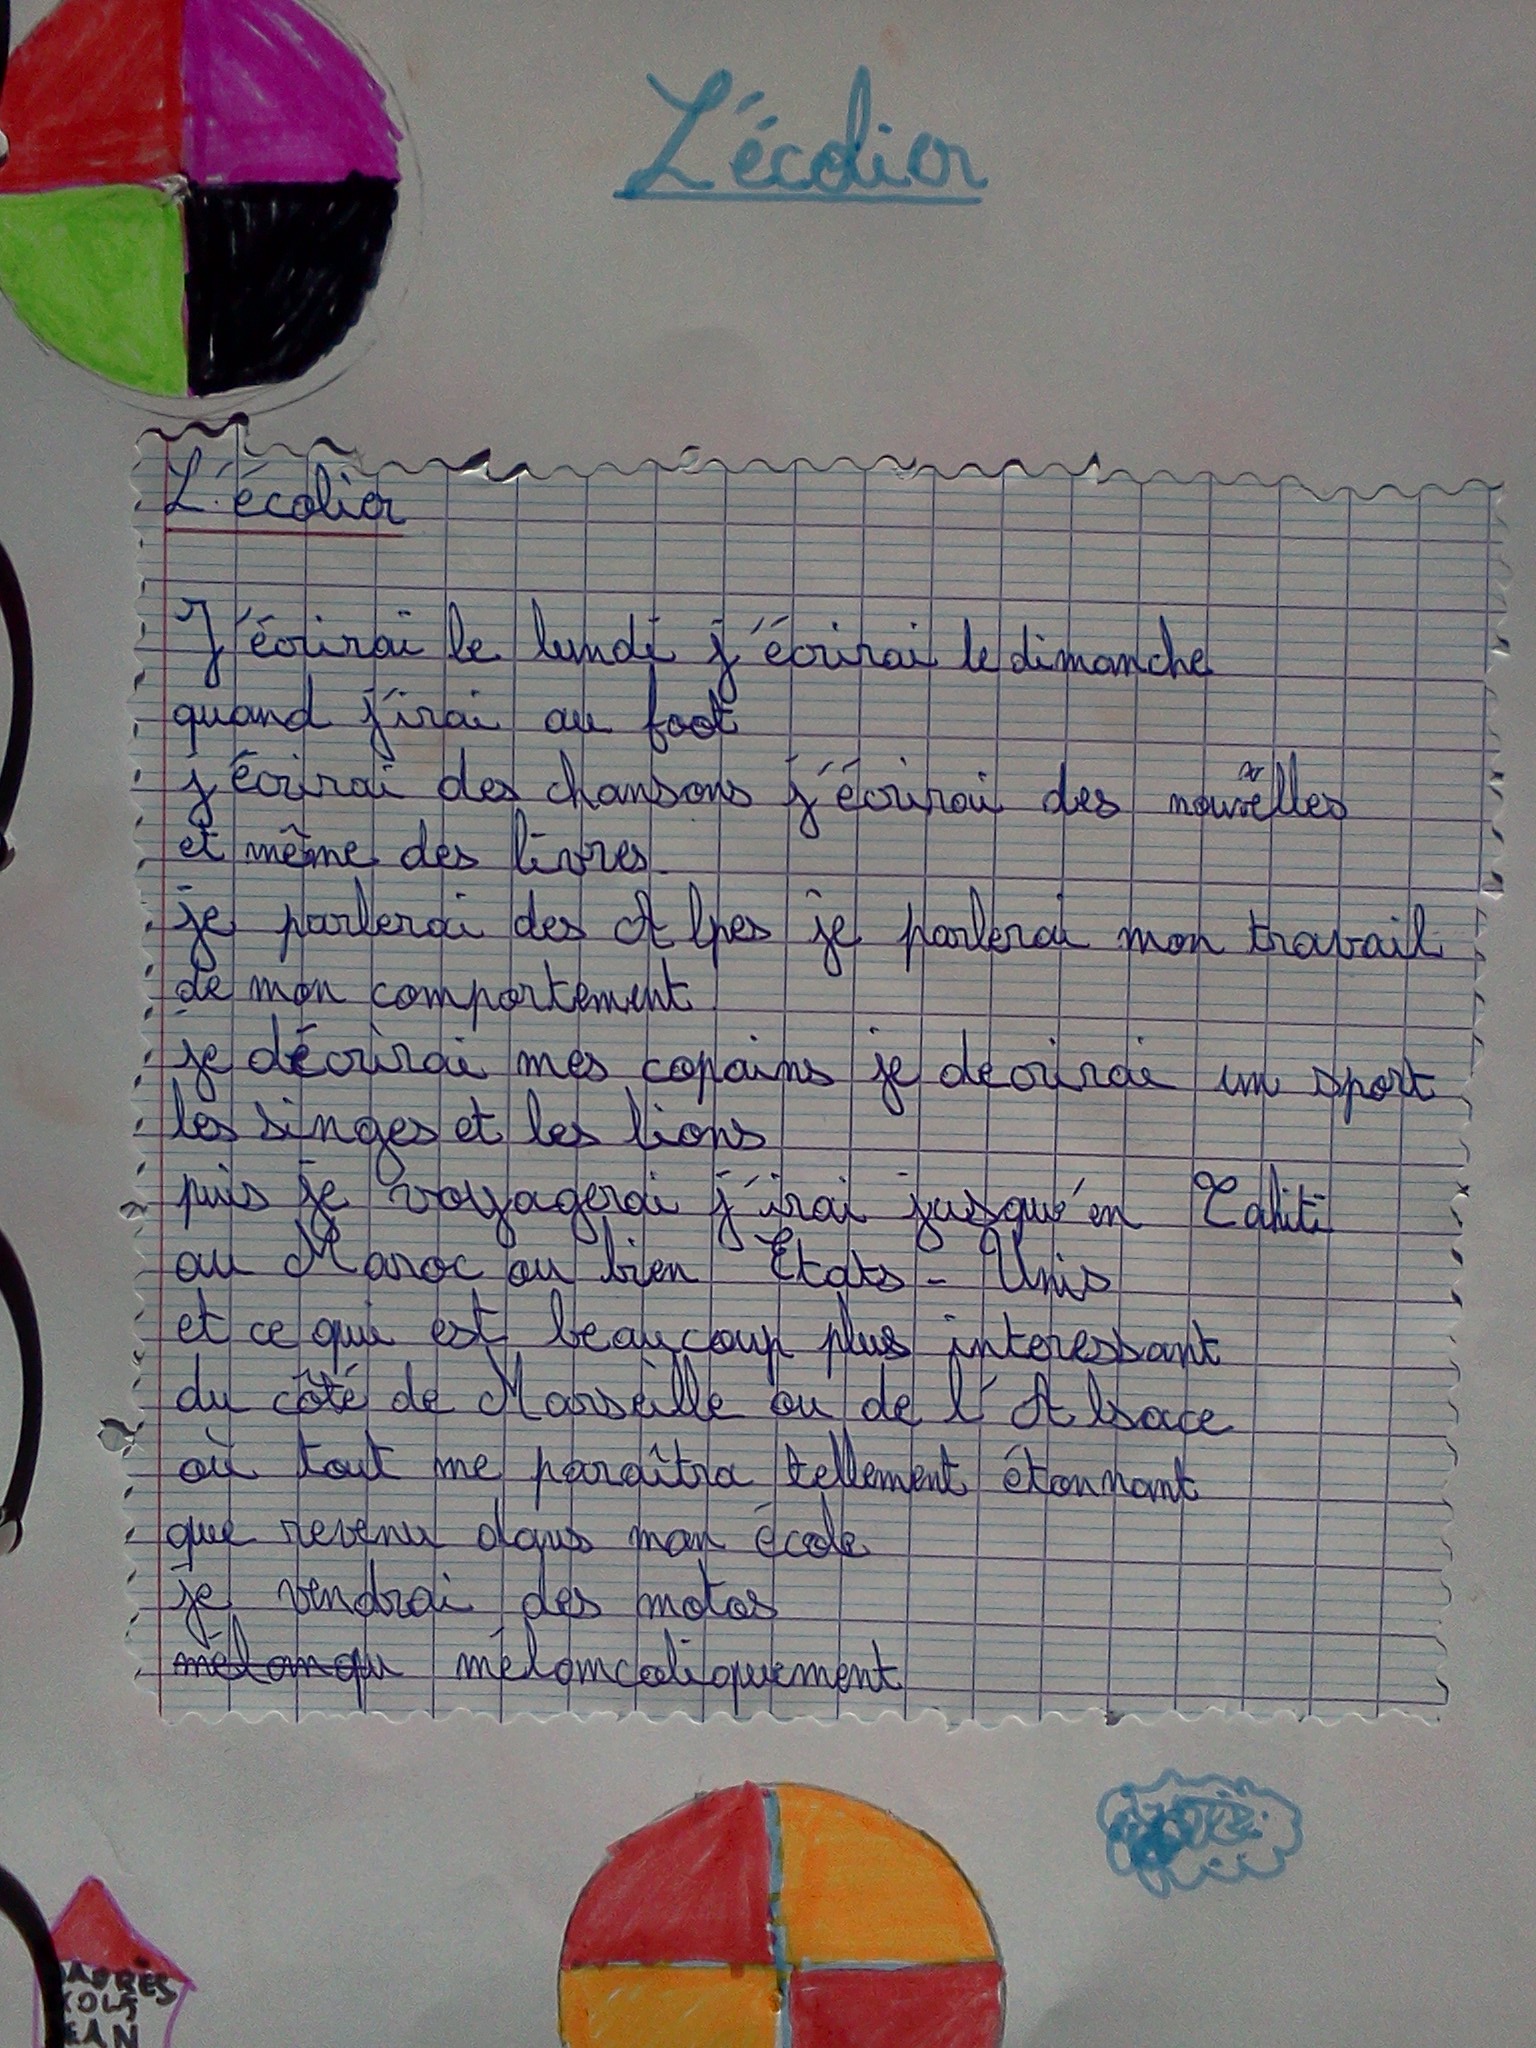 L'écolier
L'écolier
J'écrirai le lundi j'écrirai le dimanche
quand j'irai au foot
j'écrirai des chansons j'écrirai des nouvelles
et même des livres.
je parlerai des Alpes je parlerai mon travail
de mon comportement
je décrirai mes copains je decrirai un sport
les singes et les lions
puis je voyagerai j'irai jusqu'en Tahiti
au Maroc ou bien Etats-Unis
et ce qui est beaucoup plus interessant
du côté de Marseille ou de l'Alsace
où tout me paraîtra tellement étonnant
que revenu dans mon école
je vendrai des motos
mélancoliquement